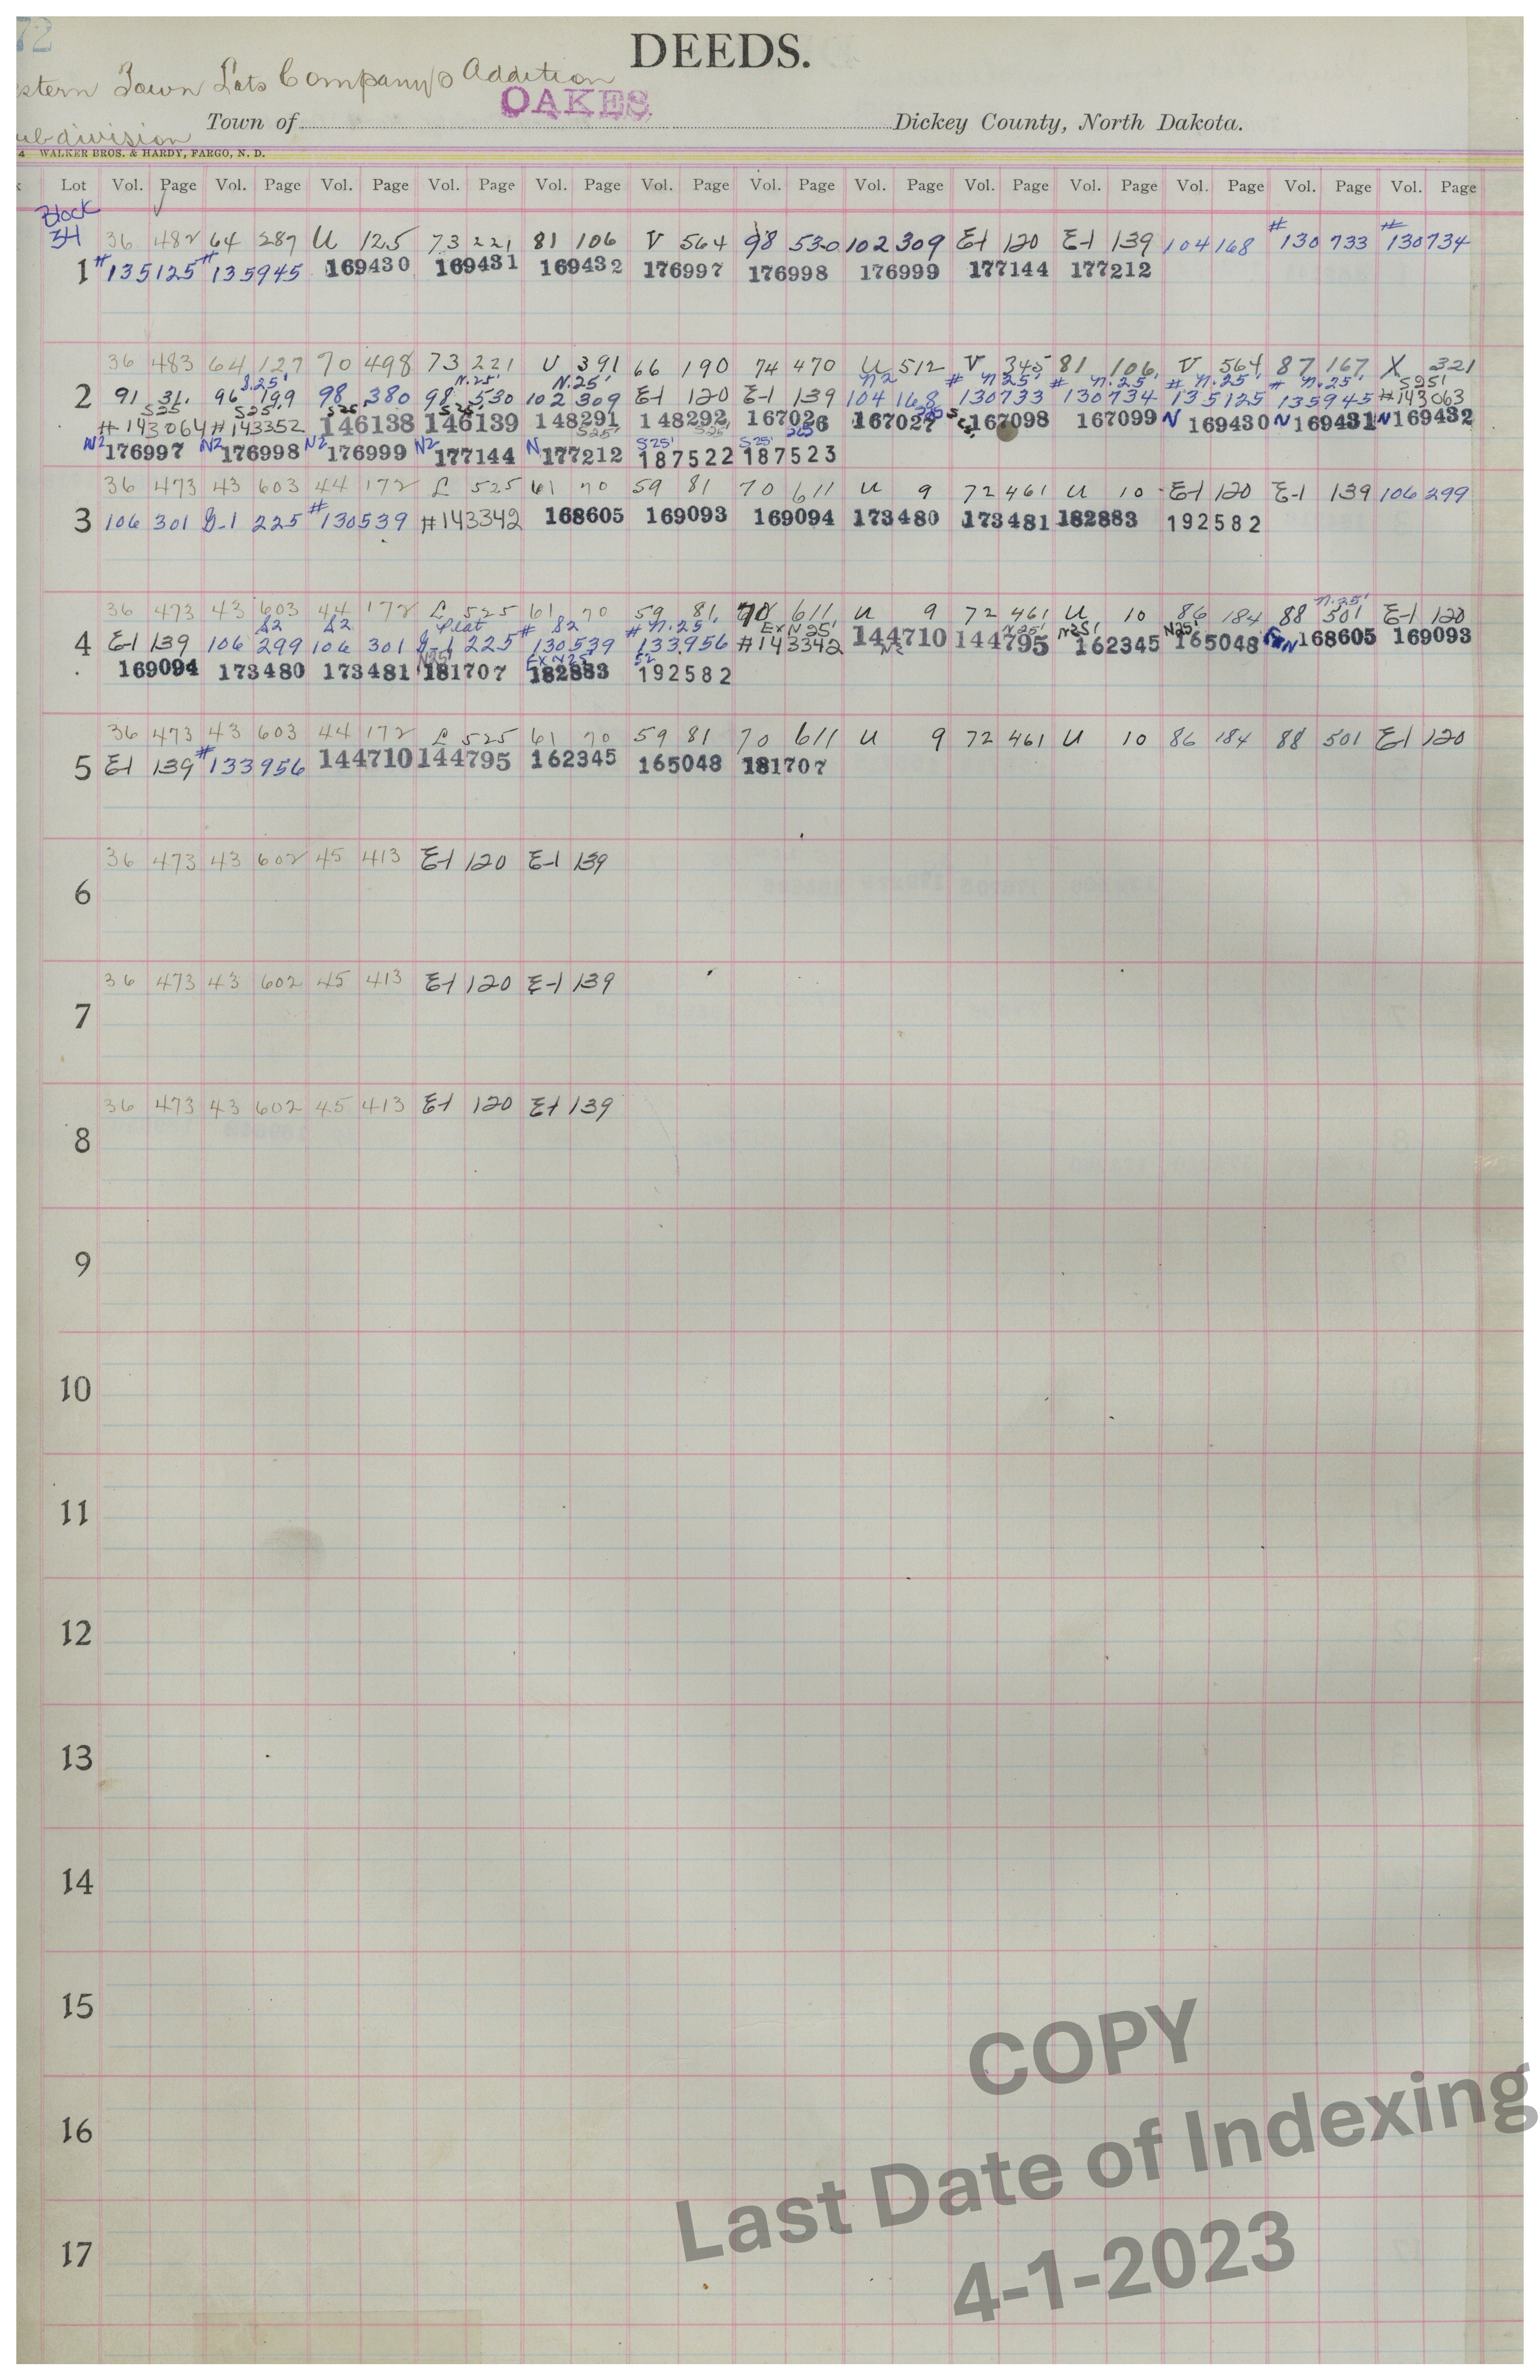 72
DEEDS.
stern Town Lots Company's Addition
OAKES
Town of Dickey County, North Dakota.
ubdivision
4 WALKER BROS. & HARDY, FARGO, N. D.
k Lot Vol. Page Vol. Page Vol. Page Vol. Page Vol. Page Vol. Page Vol. Page Vol. Page Vol. Page Vol. Page Vol. Page Vol. Page Vol. Page
Block
34 36 482 64 287 U 125 73 221 81 106 V 564 98 530 102 309 E-1 120 E-1 139 104 168 #130733 #130734
1 #135125 #135945 169430 169431 169432 176997 176998 176999 177144 177212
36 483 64 127 70 498 73 221 U 391 66 190 74 470 U 512 V 345 81 106 V 564 87 167 X 321
S.25' N.25' N.25' N2 N.25' N.25' N.25' N.25' S25'
2 91 31 96 199 98 380 98 530 102 309 E-1 120 E-1 139 104 168 #130733 #130734 #135125 #135945 #143063
S25 S25' S25' S25'
#143064 #143352 146138 146139 148291 148292 167026 167027 167098 167099 N 169430 N 169431 N 169432
S25' S25'
N2 176997 N2 176998 N2 176999 N2 177144 N 177212 S25' 187522 S25' 187523
36 473 43 603 44 172 L 525 61 70 59 81 70 611 U 9 72 461 U 10 E-1 120 E-1 139 106 299
3 106 301 G-1 225 #130539 #143342 168605 169093 169094 173480 173481 182883 192582
36 473 43 603 44 172 L 525 61 70 59 81 70 611 U 9 72 461 U 10 86 184 88 501 E-1 120
S2 S2 Plat S2 N.25' Ex N 25' N25' N25' N25' N.25'
4 E-1 139 106 299 106 301 G-1 225 #130539 #133956 #143342 144710 144795 162345 165048 168605 169093
N25' Ex N25 S2
169094 173480 173481 181707 182883 192582
36 473 43 603 44 172 L 525 61 70 59 81 70 611 U 9 72 461 U 10 86 184 88 501 E-1 120
5 E-1 139 #133956 144710 144795 162345 165048 181707
36 473 43 602 45 413 E-1 120 E-1 139
6
36 473 43 602 45 413 E-1 120 E-1 139
7
36 473 43 602 45 413 E-1 120 E-1 139
8
9
10
11
12
13
14
15
16
17
COPY
Last Date of Indexing
4-1-2023